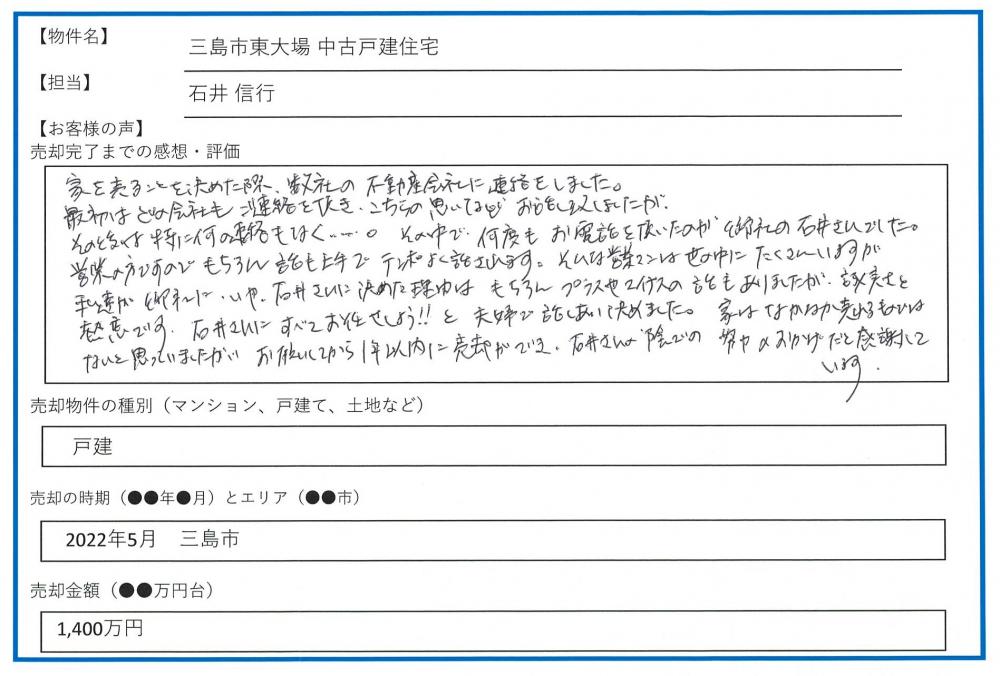 【物件名】
三島市東大場 中古戸建住宅
【担当】
石井 信行
【お客様の声】
売却完了までの感想・評価
家を売ることを決めた際、数社の不動産会社に連絡をしました。
最初はどの会社もご連絡を頂き、こちらの思いなど お話し致しましたが、
その後は特に何の連絡もなく……。その中で、何度もお電話を頂いたのが 御社の石井さんでした。
営業の方ですので もちろん 話も上手で テンポよく話されます。そんな営業マンは世の中に たくさんいますが
私達が 御社に、いや、石井さんに決めた理由は もちろん プラスやマイナスの話もありましたが、誠実さと
熱意です。石井さんに すべてお任せしよう!! と 夫婦で話しあい決めました。 家は なかなか売れるものでは
ないと思っていましたが お願いしてから 1年以内に売却ができ、石井さんの陰での 努力のおかげだと感謝して
います。
売却物件の種別(マンション、戸建て、土地など)
戸建
売却の時期(●●年●月)とエリア(●●市)
2022年5月 三島市
売却金額(●●万円台)
1,400万円